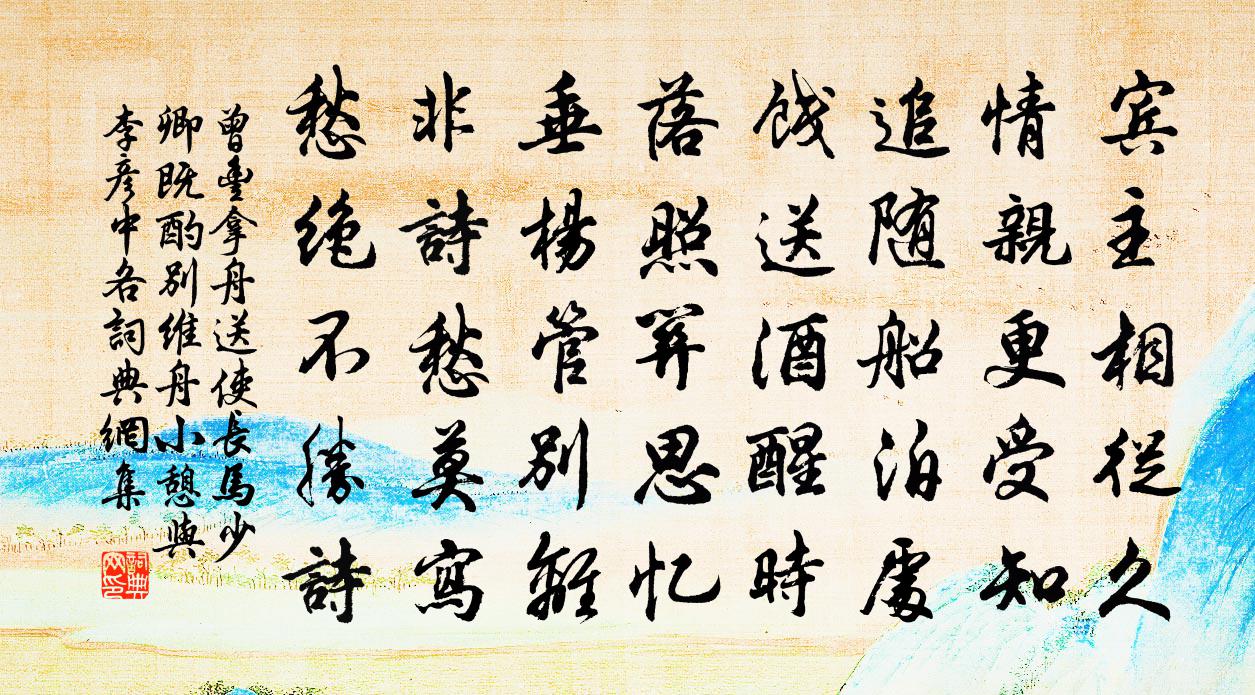 宾主相從久
情親更受知
追随船泊處
餞送酒醒時
落照羿思忆
垂楊管别離
非詩愁莫寫
愁绝不勝詩
曾豊拿舟送使長馬少
卿既酌别维舟小憩與
李彦中各詞典網集
詞典
网印